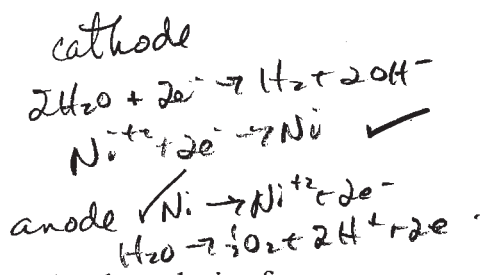 cathode
2H₂O + 2e⁻ → H₂ + 2OH⁻
Ni⁺² + 2e⁻ → Ni ✓
anode ✓ Ni → Ni⁺² + 2e⁻
H₂O → ½O₂ + 2H⁺ + 2e